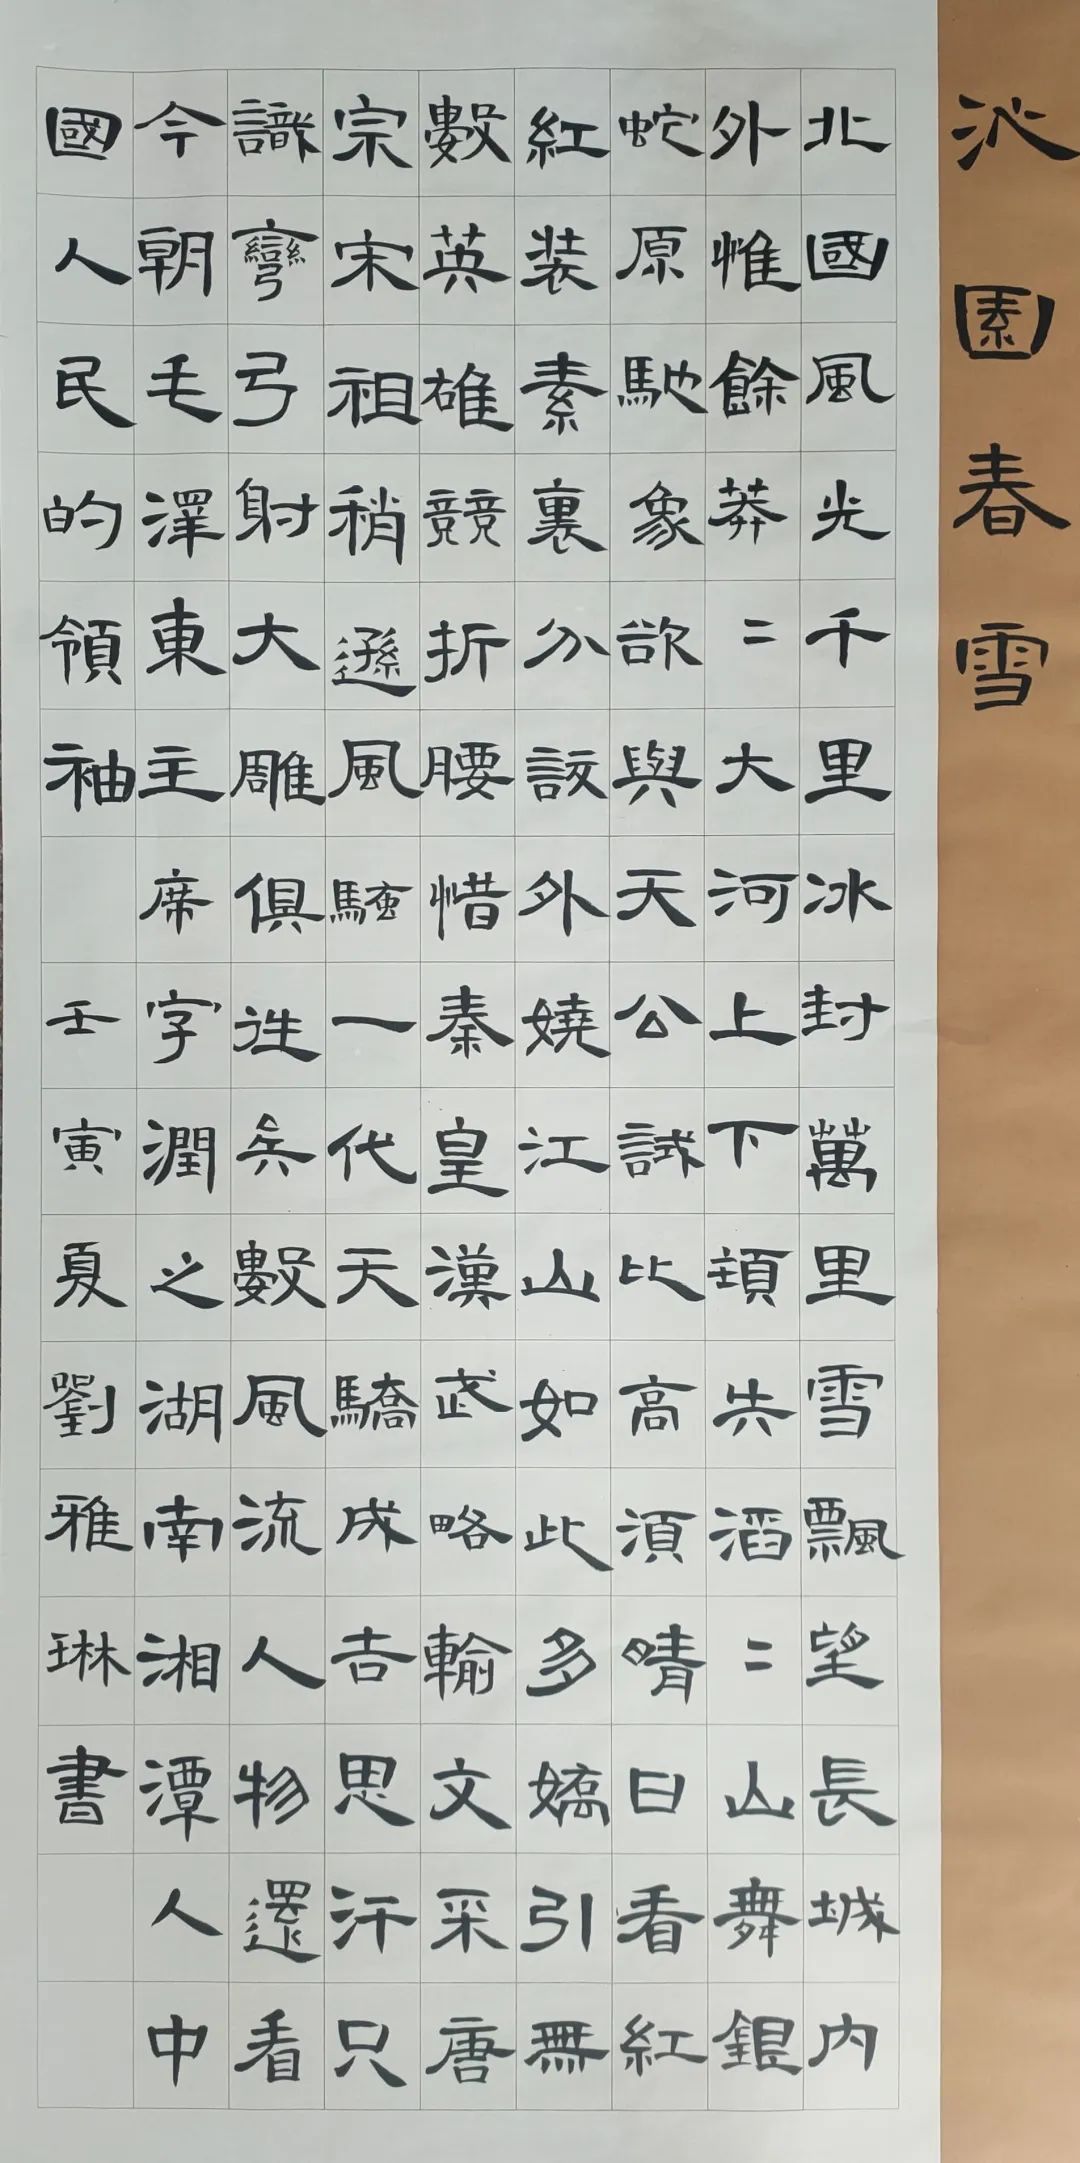 沁園春雪
北國風光千里冰封萬里雪飄望長城内
外惟餘莽二大河上下頓失滔二山舞銀
蛇原馳象欲與天公試比高須晴日看紅
紅装素裏分外嬈江山如此多嬌引無
數英雄競折腰惜秦皇漢武略輸文采唐
宗宋祖稍遜風騷一代天驕成吉思汗只
識彎弓射大雕俱往矣數風流人物還看
今朝毛澤東主席字潤之湖南湘潭人中
國人民的領袖 壬寅夏劉雅琳書